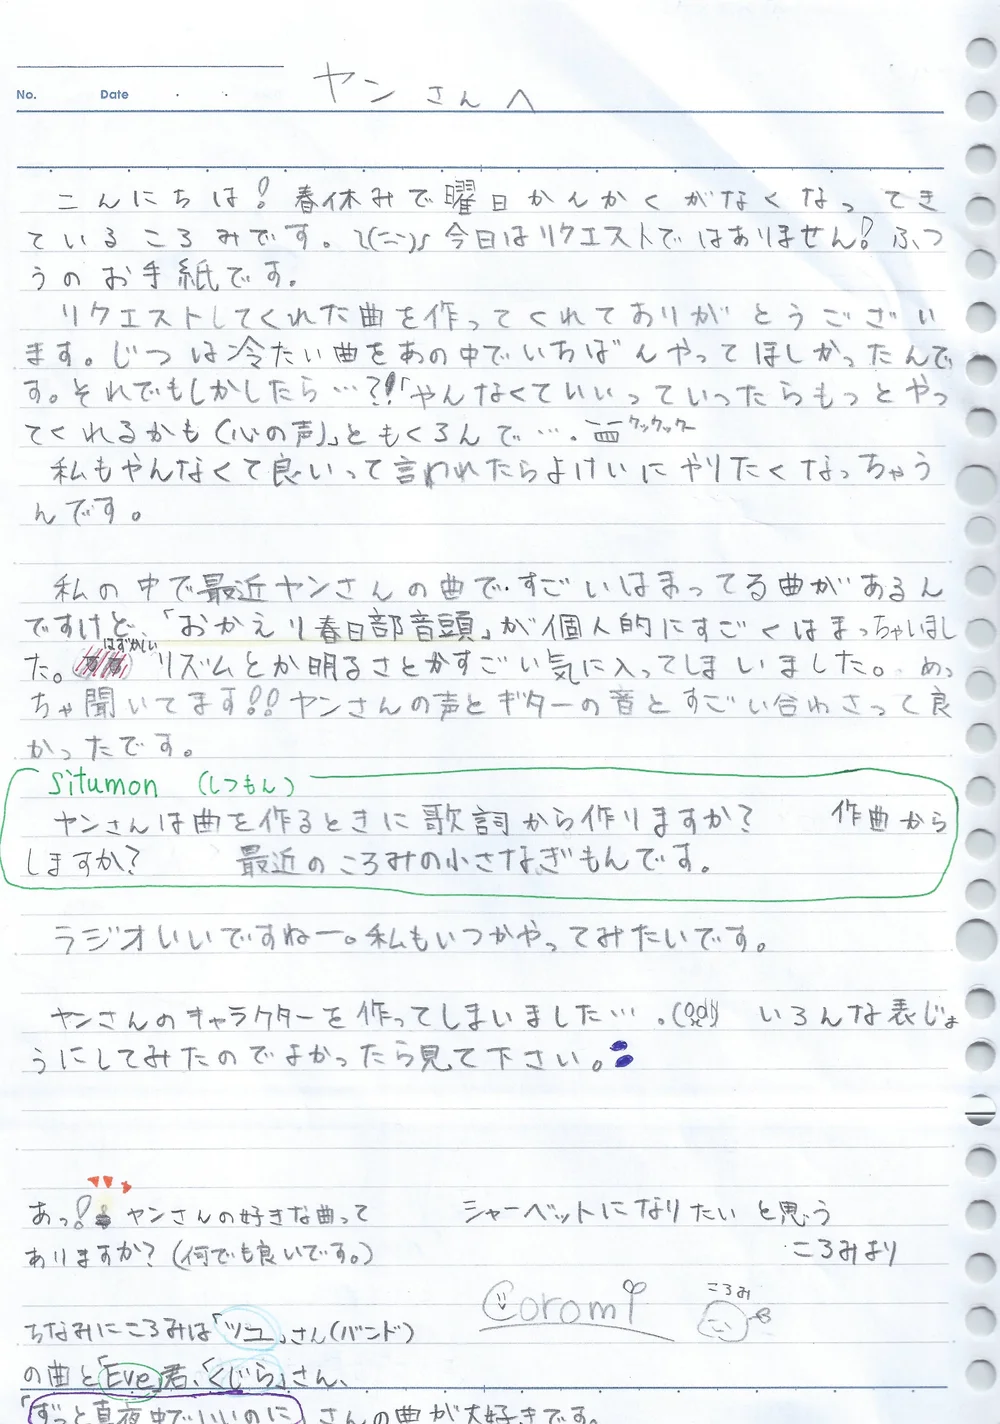 ヤンさんへ
No. Date
こんにちは!春休みで曜日かんかくがなくなってき
ているころみです。 今日はリクエストではありません!ふつ
うのお手紙です。
リクエストしてくれた曲を作ってくれてありがとうござい
ます。じつは冷たい曲をあの中でいちばんやってほしかったんで
す。それでもしかしたら…?!「やんなくていいっていったらもっとやっ
てくれるかも(心の声)」ともくろんで…. クックックー
私もやんなくて良いって言われたらよけいにやりたくなっちゃう
んです。
私の中で最近ヤンさんの曲ですごいはまってる曲があるん
ですけど、「おかえり春日部音頭」が個人的にすごくはまっちゃいまし
はずかしい
た。 リズムとか明るさとかすごい気に入ってしまいました。めっ
ちゃ聞いてます!!ヤンさんの声とギターの音とすごい合わさって良
かったです。
Situmon (しつもん)
ヤンさんは曲を作るときに歌詞から作りますか? 作曲から
しますか? 最近のころみの小さなぎもんです。
ラジオいいですねー。私もいつかやってみたいです。
ヤンさんのキャラクターを作ってしまいました…. いろんな表じょ
うにしてみたのでよかったら見て下さい。
あっ! ヤンさんの好きな曲って
ありますか?(何でも良いです。)
シャーベットになりたいと思う
ころみより
Coromi
ころみ
ちなみにころみは「ツユ」さん(バンド)
の曲と「Eve」君、「くじら」さん、
「ずっと真夜中でいいのに」さんの曲が大好きです。